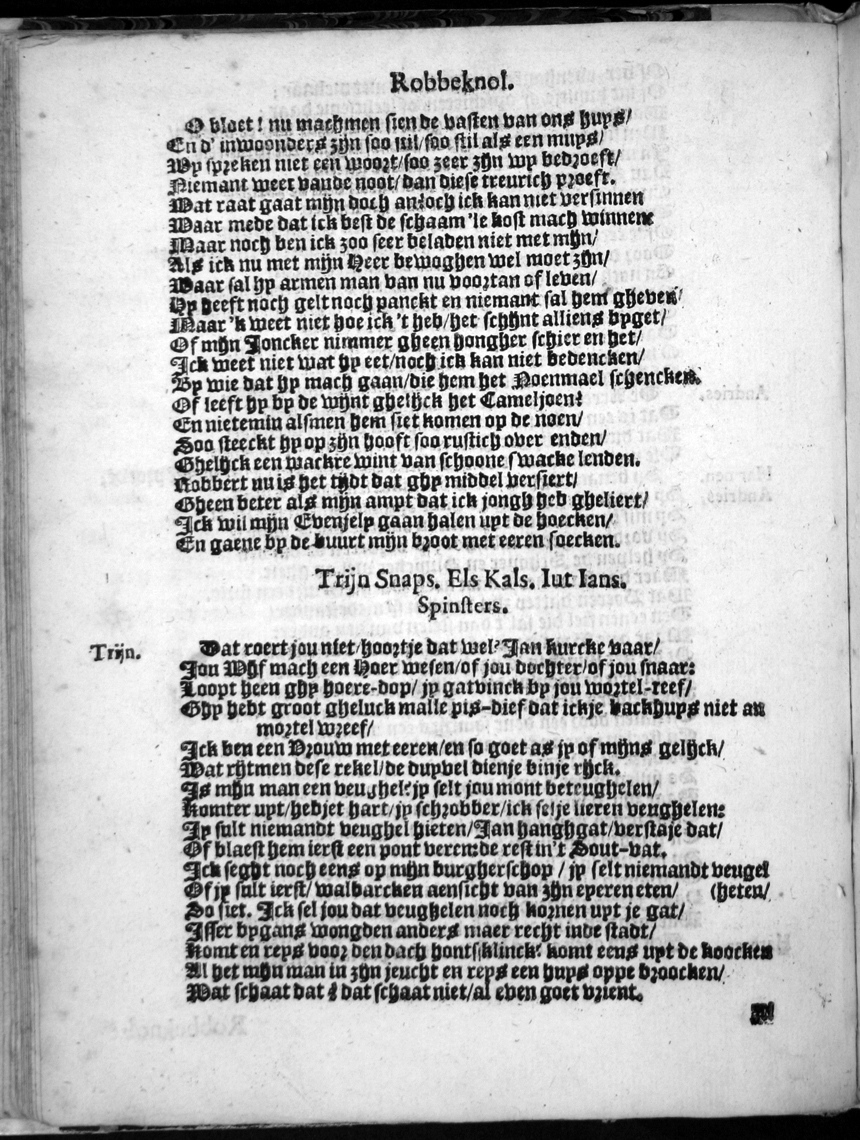 Robbeknol.
O bloet! nu machmen sien de vasten van ons huys/
En d' inwoonders zijn soo stil/soo stil als een muys/
Wy spreken niet een woort/soo zeer zijn wy bedroeft/
Niemant weet vande noot/dan diese treurich proeft.
Wat raat gaat mijn doch an: och ick kan niet versinnen
Waar mede dat ick best de schaam'le kost mach winnen:
Maar noch ben ick zoo seer beladen niet met mijn/
Als ick nu met mijn Heer bewoghen wel moet zijn/
Waar sal hy armen man van nu voortan of leven/
Hy heeft noch gelt noch panckt en niemant sal hem gheven/
Maar 'k weet niet hoe ick 't heb/het schijnt alliens byget/
Of mijn Joncker nimmer gheen hongher schier en het/
Ick weet niet wat hy eet/noch ick kan niet bedencken/
By wie dat hy mach gaan/die hem het Noenmael schencken.
Of leeft hy by de wijnt ghelijck het Cameljoen?
En nietemin alsmen hem siet komen op de noen/
Soo steeckt hy op zijn hooft soo rustich over enden/
Ghelijck een wackre wint van schoone swacke lenden.
Robbert nu is het tijdt dat ghy middel versiert/
Gheen beter als mijn ampt dat ick jongh heb gheliert/
Ick wil mijn Evenjely gaan halen uyt de hoecken/
En gaene by de buurt mijn broot met eeren soecken.
Trijn Snaps. Els Kals. Iut Ians.
Spinsters.
Trijn. Wat roert jou niet/hoortje dat wel? Jan kurcke vaar/
Jou Wijf mach een Hoer wesen/of jou dochter/of jou snaar:
Loopt heen ghy hoere-dop/ jy gatvinck by jou wortel-reef/
Ghy hebt groot gheluck malle pis-dief dat ickje backhuys niet an
mortel wreef/
Ick ben een Vrouw met eeren/en so goet as jy of mijns gelijck/
Wat rijtmen dese rekel/de duyvel dienje binje rijck.
Is mijn man een veughel? jy selt jou mont beteughelen/
Komter uyt/hebjet hart/jy schrobber/ick selje lieren veughelen:
Jy sult niemandt veughel hieten/Jan hanghgat/verstaje dat/
Of blaest hem ierst een pont veren: de rest in't Sout-vat.
Ick seght noch eens op mijn burgherschop / jy selt niemandt veugel
Of jy sult ierst/walbarcken aensicht van zijn eyeren eten/ (heten/
So siet. Ick sel jou dat veughelen noch kornen uyt je gat/
Isser bygans wongden anders maer recht inde stadt/
Komt en reys voor den dach hontsklinck? komt eens uyt de koocken
Al het mijn man in zijn jeucht en reys een huys oppe broocken/
Wat schaat dat? dat schaat niet/al even goet vrient.